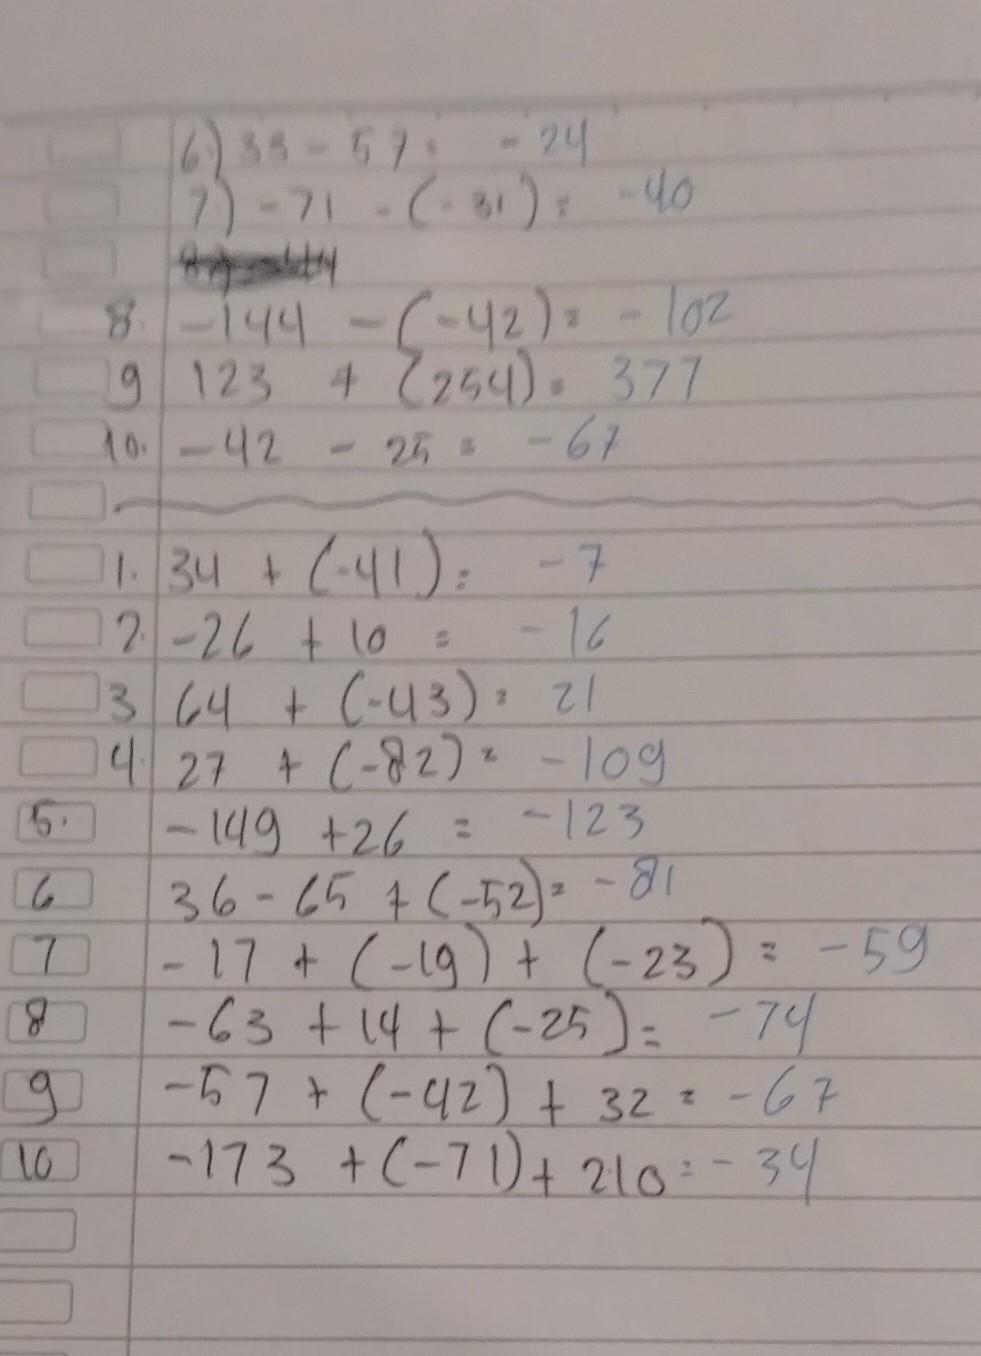 6.) 33 - 57 = - 24
7.) - 71 - (- 31) = - 40
8. - 144 - (- 42) = - 102
9 123 + (254) = 377
10. - 42 - 25 = - 67
1. 34 + (-41) = - 7
2. -26 + 10 = - 16
3 64 + (-43) = 21
4. 27 + (-82) = - 109
5. - 149 + 26 = - 123
6 36 - 65 + (-52) = - 81
7 - 17 + (-19) + (-23) = - 59
8 - 63 + 14 + (-25) = - 74
9 - 57 + (-42) + 32 = - 67
10 - 173 + (-71) + 210 = - 34